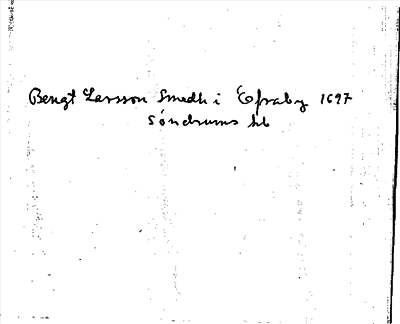 Bengt Larsson Smedh i Efraby 1697
Söndrums kb